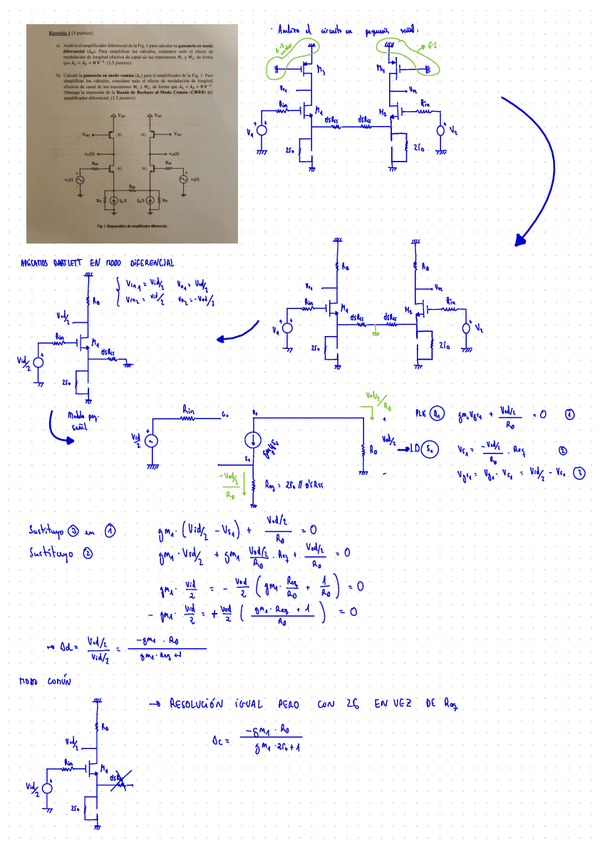 Ejercicio 1 (3 puntos)
a) Analice el amplificador diferencial de la Fig. 1 para calcular su ganancia en modo
diferencial (Ad). Para simplificar los cálculos, considere nulo el efecto de
modulación de longitud efectiva de canal de los transistores M₁ y M₂, de forma
que λ₁ = λ₂ = 0 V⁻¹ (1.5 puntos)
b) Calcule la ganancia en modo común (Ac) para el amplificador de la Fig. 1. Para
simplificar los cálculos, considere nulo el efecto de modulación de longitud
efectiva de canal de los transistores M₁ y M₂, de forma que λ₁ = λ₂ = 0 V⁻¹.
Obtenga la expresión de la Razón de Rechazo al Modo Común (CMRR) del
amplificador diferencial. (1.5 puntos)
Fig. 1. Esquemático de amplificador diferencial.
· Analizo el circuito en pequeña señal:
M3
Rin
M1
V1
2r0
0'5Rss 0'5Rss
M2
Rin
V2
2r0
RD
RD
Rin
M1
V1
2r0
0'5Rss 0'5Rss
M2
Rin
V2
2r0
APLICAMOS BARTLETT EN MODO DIFERENCIAL
Vin1 = Vid/2 Vo1 = Vod/2
Vin2 = -Vid/2 Vo2 = -Vod/2
RD
Vod/2
Rin
M1
Vid/2
0'5Rss
2r0
Modelo peq.
señal
Rin
Vid/2
gm1Vgs1
S1
-Vod/2 / RD
Req = 2r0 // 0'5Rss
Vod/2 / RD
RD
Vod/2
gm1Vgs1 + Vod/2 / RD = 0 ①
Vs1 = -Vod/2 / RD · Req ②
Vgs1 = Vg1 - Vs1 = Vid/2 - Vs1 ③
Sustituyo ③ en ① gm1·(Vid/2 - Vs1) + Vod/2 / RD = 0
Sustituyo ② gm1·Vid/2 + gm1 Vod/2 / RD · Req + Vod/2 / RD = 0
gm1· Vid/2 = - Vod/2 (gm1· Req/RD + 1/RD) = 0
- gm1· Vid/2 = + Vod/2 ( gm1·Req + 1 / RD ) = 0
→ Ad = Vod/2 / Vid/2 = -gm1·RD / gm1·Req+1
MODO COMÚN
→ RESOLUCIÓN IGUAL PERO CON 2r0 EN VEZ DE Req
Ac = -gm1·RD / gm1·2r0+1
RD
Vod/2
Rin
M1
Vid/2
2r0